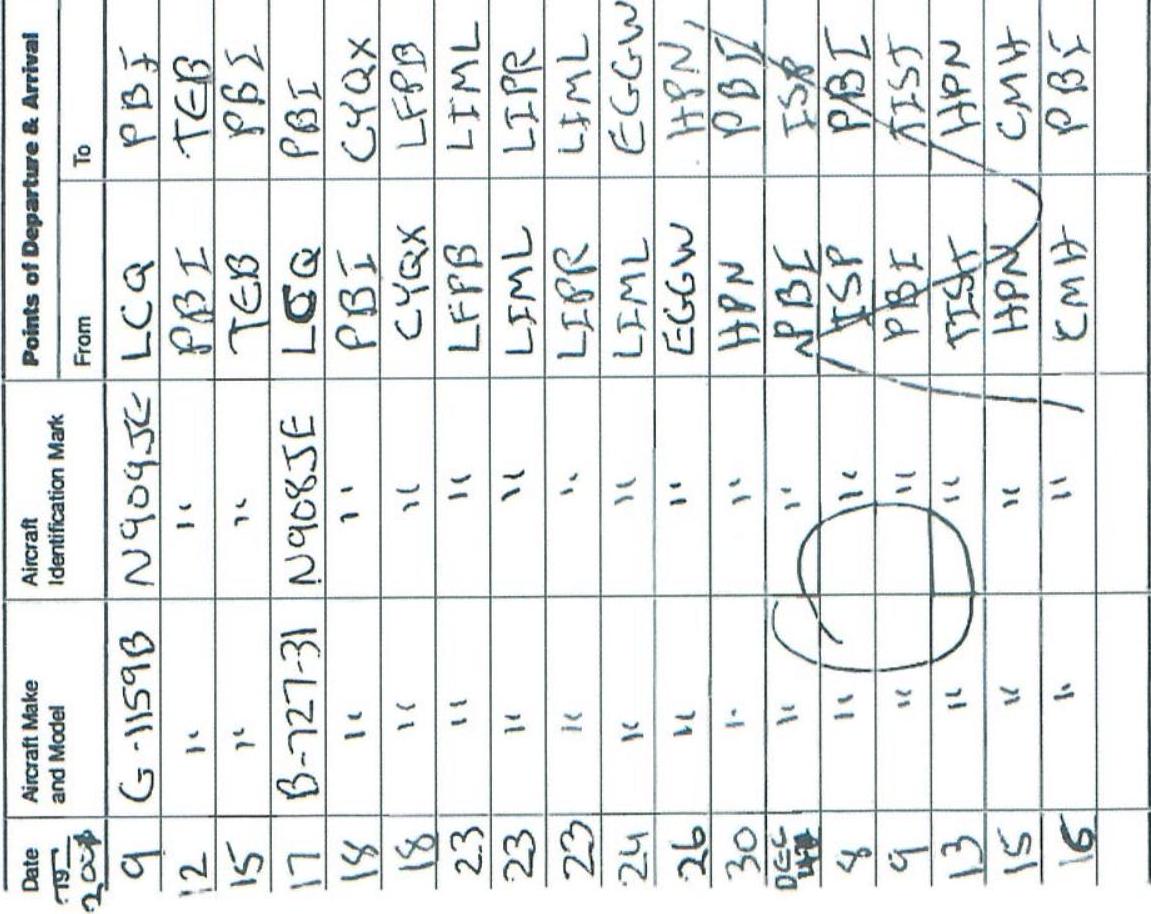 Date Aircraft Make and Model Aircraft Identification Mark Points of Departure & Arrival
19 From To
9 G-1159B N909JE LCQ PBI
12 " " PBI TEB
15 " " TEB PBI
17 B-727-31 N908JE LCQ PBI
18 " " PBI CYQX
18 " " CYQX LFPB
23 " " LFPB LIML
23 " " LIML LIPR
23 " " LIPR LIML
24 " " LIML EGGW
26 " " EGGW HPN
30 " " HPN PBI
DEC " " PBI ISP
8 " " ISP PBI
9 " " PBI TIST
13 " " TIST HPN
15 " " HPN CMH
16 " " CMH PBI